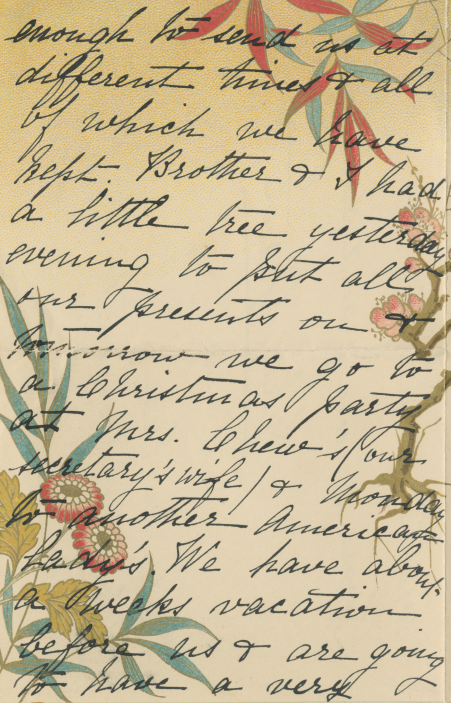 enough to send us at
different times & all
of which we have
kept. Brother & I had
a little tree yesterday
evening to put all
our presents on &
tomorrow we go to
a Christmas party
at Mrs. Chew's (our
secretary's wife) & Monday
to another American
Lady's. We have about
a weeks vacation
before us & are going
to have a very